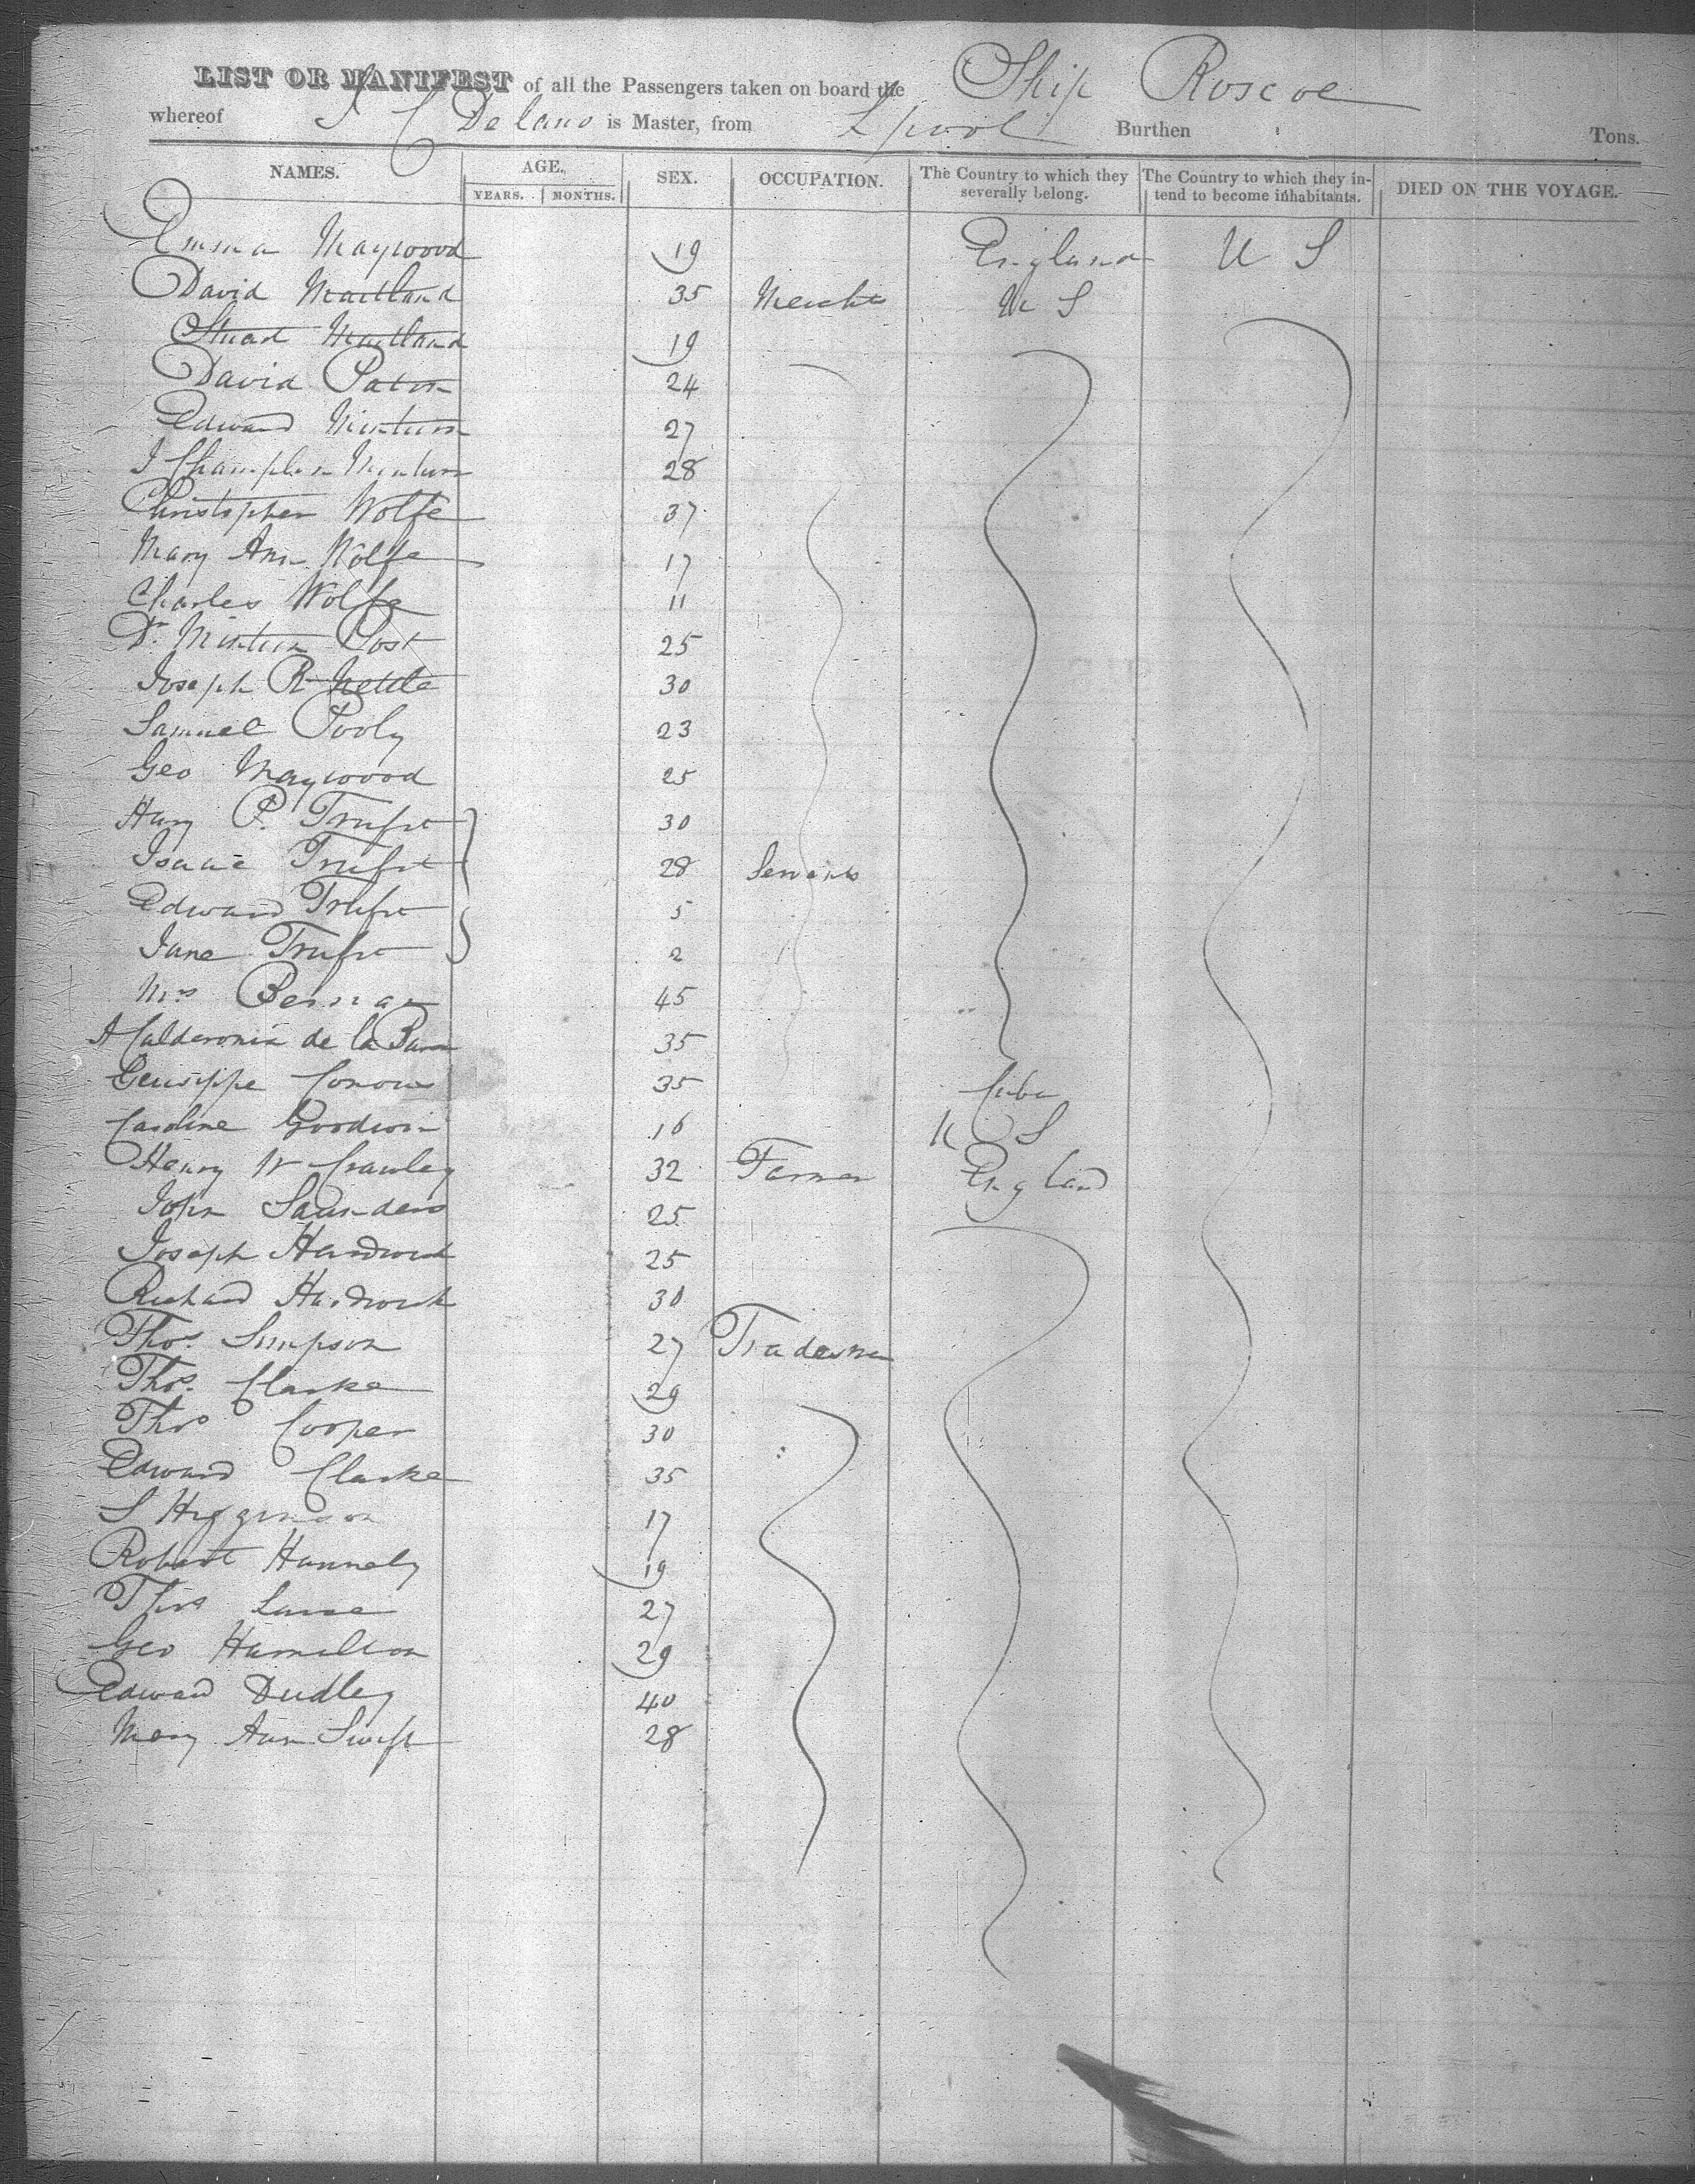 LIST OR MANIFEST of all the Passengers taken on board the Ship Roscoe
whereof J C Delano is Master, from Lpool Burthen Tons.
NAMES. AGE. SEX. OCCUPATION. The Country to which they severally belong. The Country to which they intend to become inhabitants. DIED ON THE VOYAGE.
YEARS. MONTHS.
Emma Maywood 19 England U S
David Maitland 35 Mercht U S
Stuart Maitland 19
David Paton 24
Edward Minturn 27
J Champlin Minturn 28
Christopher Wolfe 37
Mary Ann Wolfe 17
Charles Wolfe 11
Dr. Minturn Post 25
Joseph R Nettle 30
Samuel Pooly 23
Geo Maywood 25
P. 30
Isaac 28 Servants
Edward 5
Jane 2
Mrs 45
A de la 35
Geusippe 35 Cuba
Caroline Goodwin 16 U S
Henry W Crawley 32 Farmer England
John Saunders 25
Joseph 25
Richard 30
Thos. Simpson 27
Thos. Clarke 29
Thos Cooper 30
Edward Clarke 35
S Higginson 17
Robert 19
Thos 27
Geo Hamilton 29
Edward Dudley 40
Mary Ann Swift 28